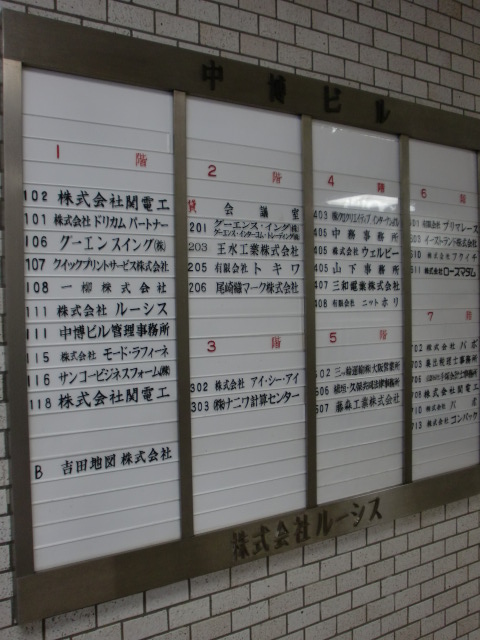 中博ビル
1 階
102 株式会社関電工
101 株式会社 ドリカム パートナー
106 グーエンスイング(株)
107 クイックプリントサービス株式会社
108 一柳株式会社
111 株式会社 ルーシス
111 中博ビル管理事務所
115 株式会社 モード・ラフィーネ
116 サンコービジネスフォーム(株)
118 株式会社関電工
B 吉田地図株式会社
2 階
貸 会議室
201 グーエンス・イング(株)
グーエンス・インターコム・トレーディング(株)
203 王水工業株式会社
205 有限会社 トキワ
206 尾崎織マーク株式会社
3 階
302 株式会社 アイ・シー・アイ
303 (株)ナニワ計算センター
4 階
403
405 中務事務所
405 株式会社 ウェルビー
405 山下事務所
407 三和電業株式会社
408 有限会社 ニット ホリ
5 階
502 三ッ輪運輸(株)大阪営業所
507 藤森工業株式会社
6 階
601 有限会社 プリマレース
603 イーストランド株式会社
610 株式会社 フクイチ
611 株式会社 ローズマダム
7 階
702 株式会社 パボ
708 株式会社関電工
710 株式会社 パボ
713 株式会社 コンパック
株式会社 ルーシス